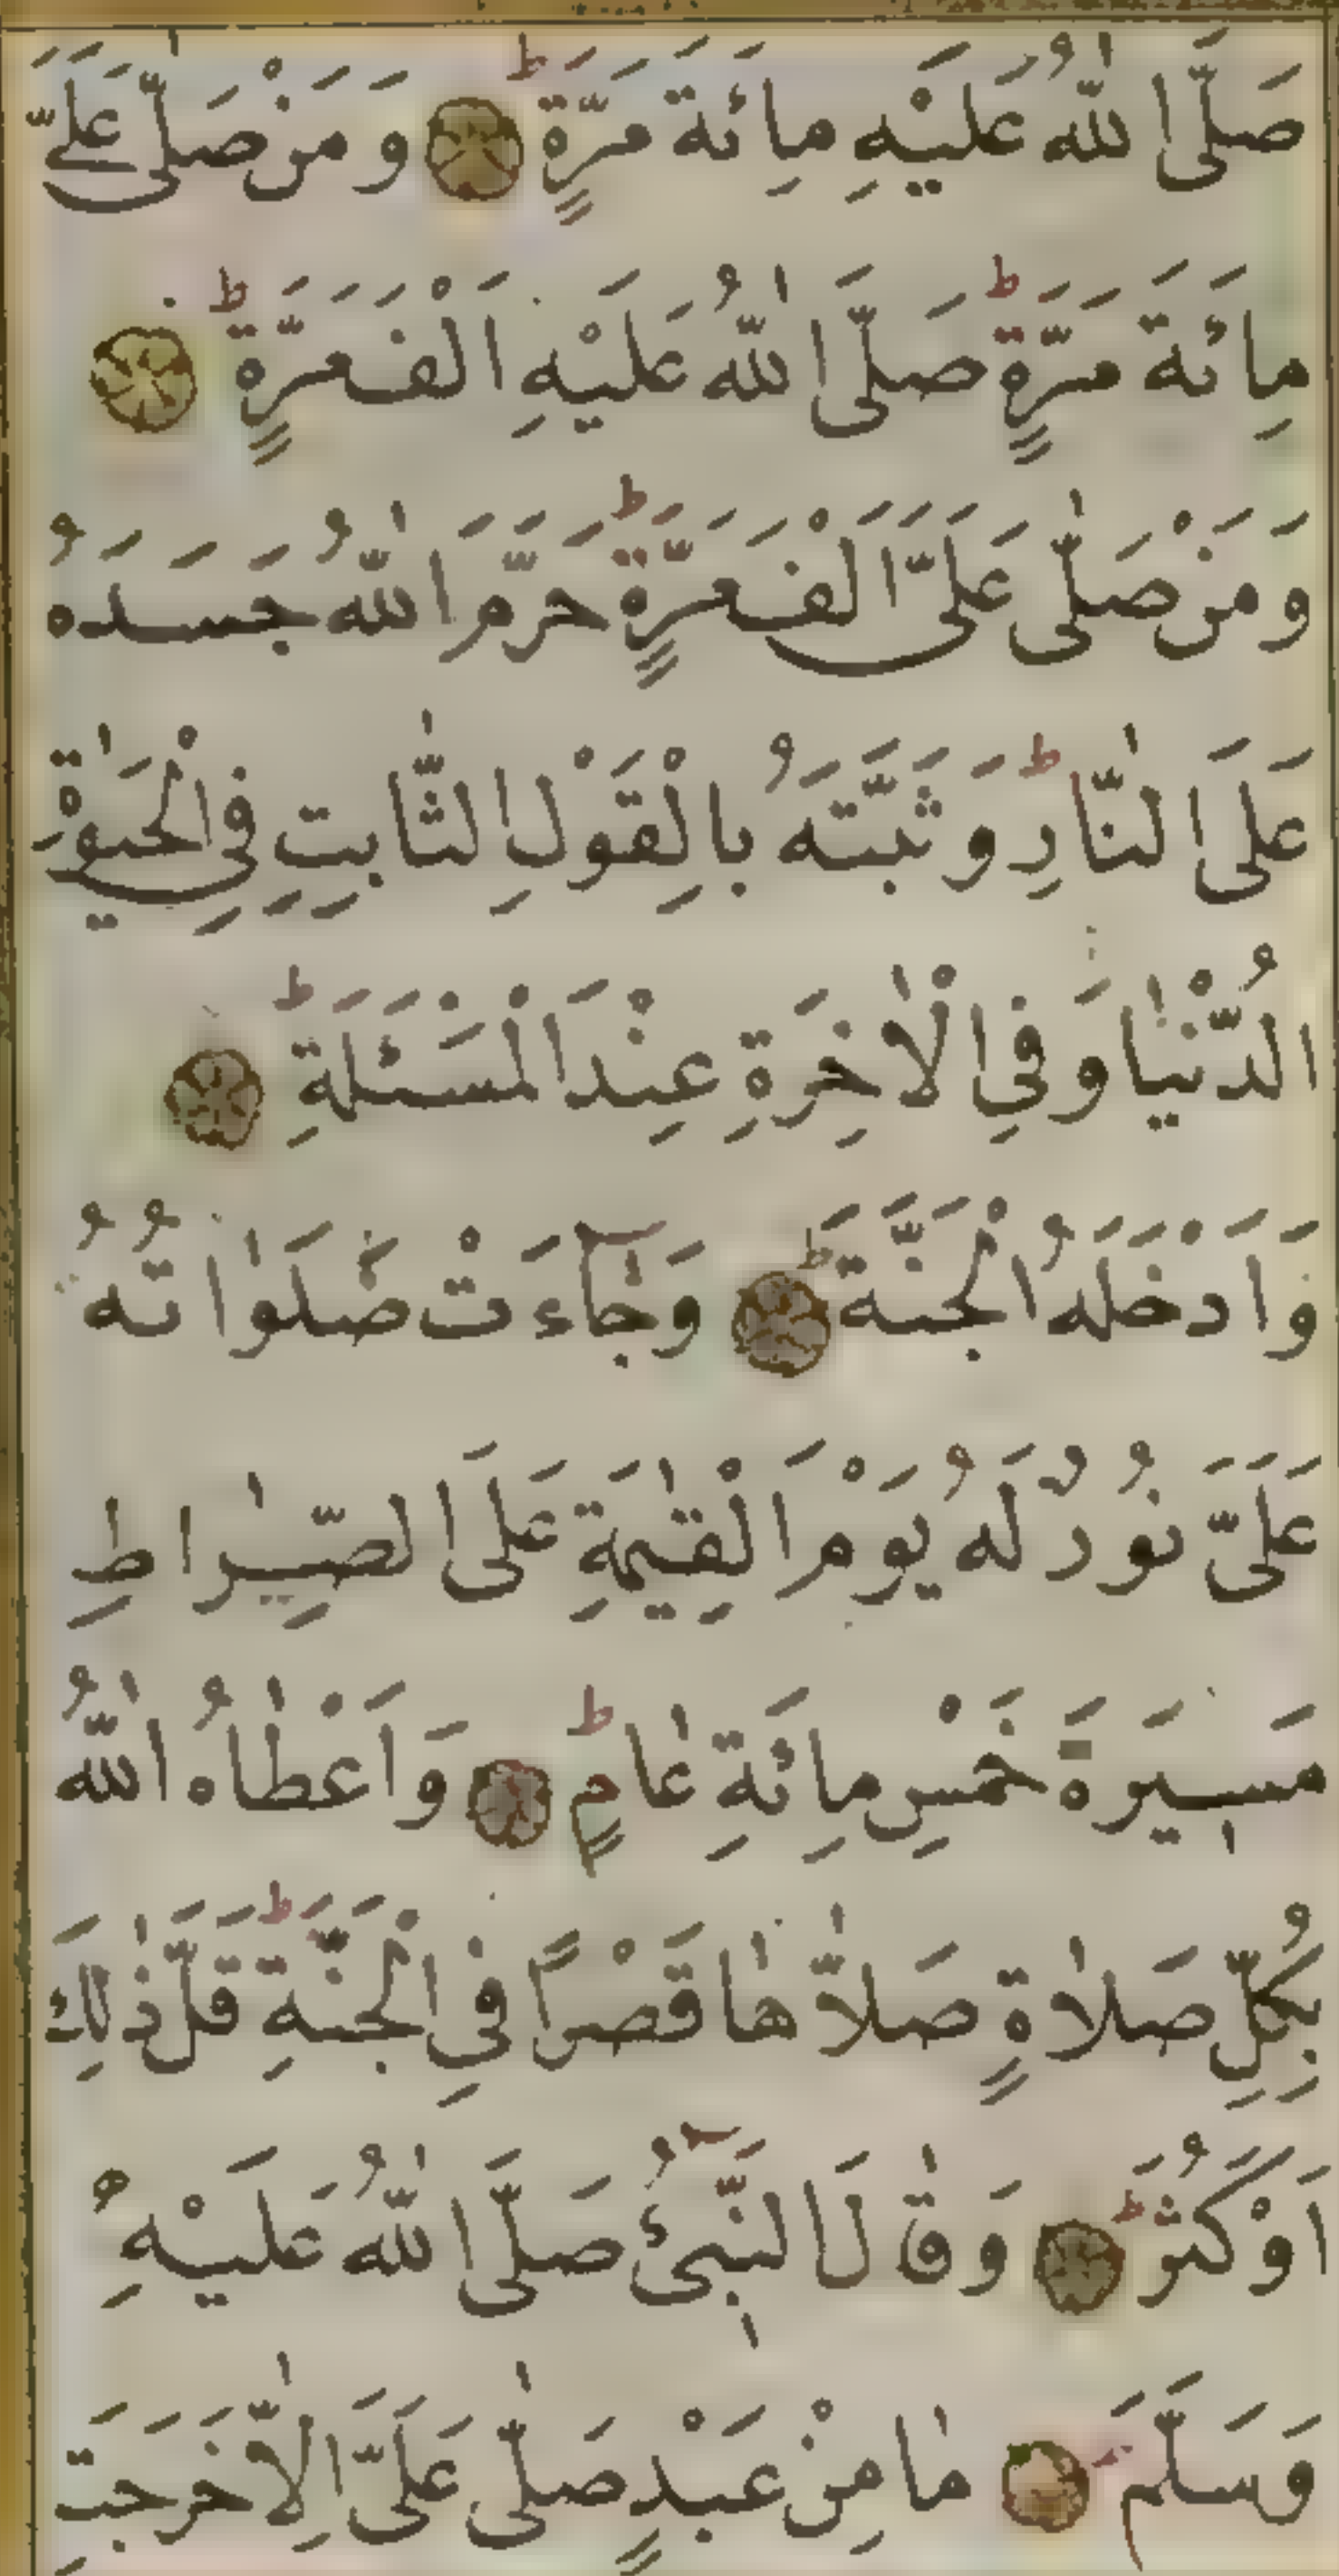 صَلَّى اللّٰهُ عَلَيْهِ مِائَةَ مَرَّةٍ ط وَمَنْ صَلّٰى عَلَيَّ
مِائَةَ مَرَّةٍ ط صَلَّى اللّٰهُ عَلَيْهِ اَلْفَ مَرَّةٍ ط
وَمَنْ صَلّٰى عَلَيَّ اَلْفَ مَرَّةٍ ط حَرَّمَ اللّٰهُ جَسَدَهُ
عَلَى النّٰارِ ط وَثَبَّتَهُ بِالْقَوْلِ الثّٰابِتِ فِي الْحَيٰوةِ
الدُّنْيٰا وَفِي الْاٰخِرَةِ عِنْدَ الْمَسْئَلَةِ ط
وَاَدْخَلَهُ الْجَنَّةَ ط وَجٰٓاءَتْ صَلَوٰاتُهُ
عَلَيَّ نُورٌ لَهُ يَوْمَ الْقِيٰمَةِ عَلَى الصِّرٰاطِ
مَسِيرَةَ خَمْسِ مِائَةِ عٰامٍ ط وَاَعْطٰاهُ اللّٰهُ
بِكُلِّ صَلٰاةٍ صَلاّٰهٰا قَصْرًا فِي الْجَنَّةِ ط قَلَّ ذٰلِكَ
اَوْ كَثُرَ ط وَقٰالَ النَّبِيُّ صَلَّى اللّٰهُ عَلَيْهِ
وَسَلَّمَ مٰا مِنْ عَبْدٍ صَلّٰى عَلَيَّ اِلاّٰ خَرَجَتِ